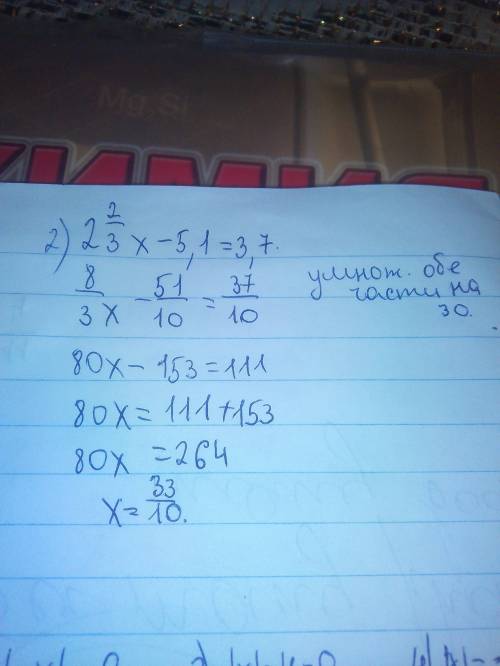 Mg₂Si
ХИМИЯ
2) 2 2/3 x - 5,1 = 3,7.
8/3 x - 51/10 = 37/10
умнож. обе
части на
30.
80x - 153 = 111
80x = 111 + 153
80x = 264
x = 33/10.